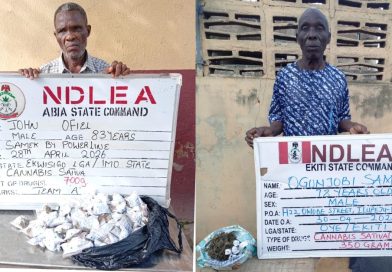 NDLEA
ABIA STATE COMMAND
JOHN OFIEL
MALE AGE 83 YEARS
SAMEK BY POWERLINE
28TH APRIL 2026
STATE LGA/ IMO STATE
CANNABIS SATIVA
700g
TEAM A
NDLEA
EKITI STATE COMMAND
NAME
AGE 72 YEARS
SEX MALE
P.O.A STREET,
D.O.A 30-04
LGA/STATE
TYPE OF DRUGS CANNABIS SATIVA
350 GRAMS